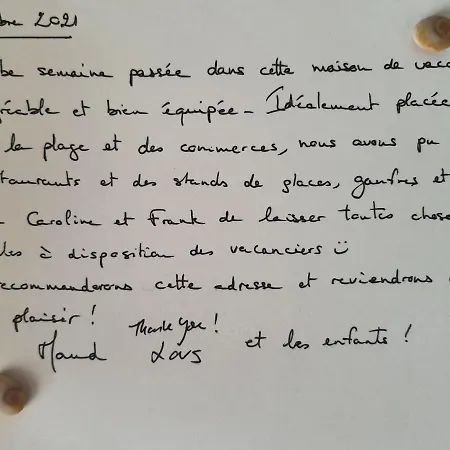 bre 2021
be semaine passée dans cette maison de vaca
réable et bien équipée - Idéalement placée
la plage et des commerces, nous avons pu
staurants et des stands de glaces, gaufres et
Caroline et Frank de laisser toutes chose
les à disposition des vacanciers ☺
recommanderons cette adresse et reviendrons
plaisir !
Thank you !
Maud et les enfants !